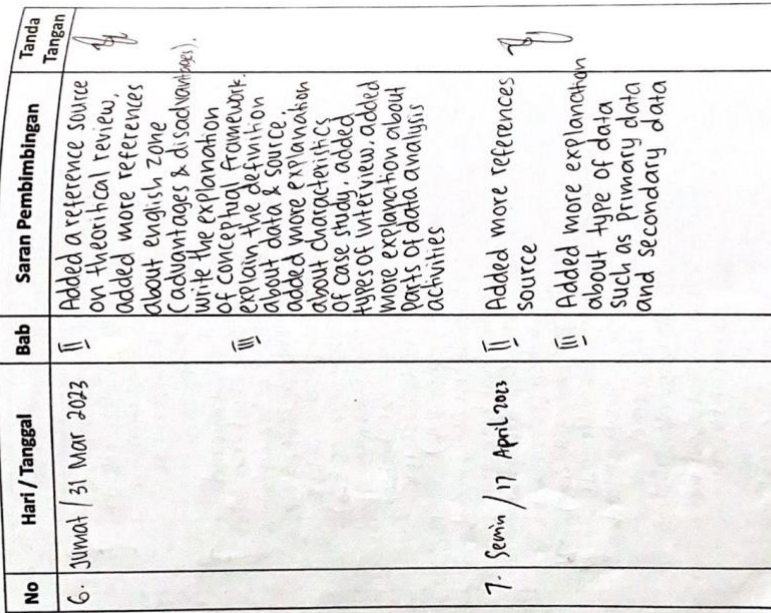 No Hari / Tanggal Bab Saran Pembimbingan Tanda Tangan
6. Jumat / 31 Mar 2023 II Added a reference source
on theoritical review,
added more references
about english zone
(advantages & disadvantages).
write the explanation
of conceptual framework.
III explain the definition
about data & source.
added more explanation
about characteristics
of case study, added
types of interview, added
more explanation about
parts of data analysis
activities
7. Senin / 17 April 2023 II Added more references
source
III Added more explanation
about type of data
such as primary data
and secondary data